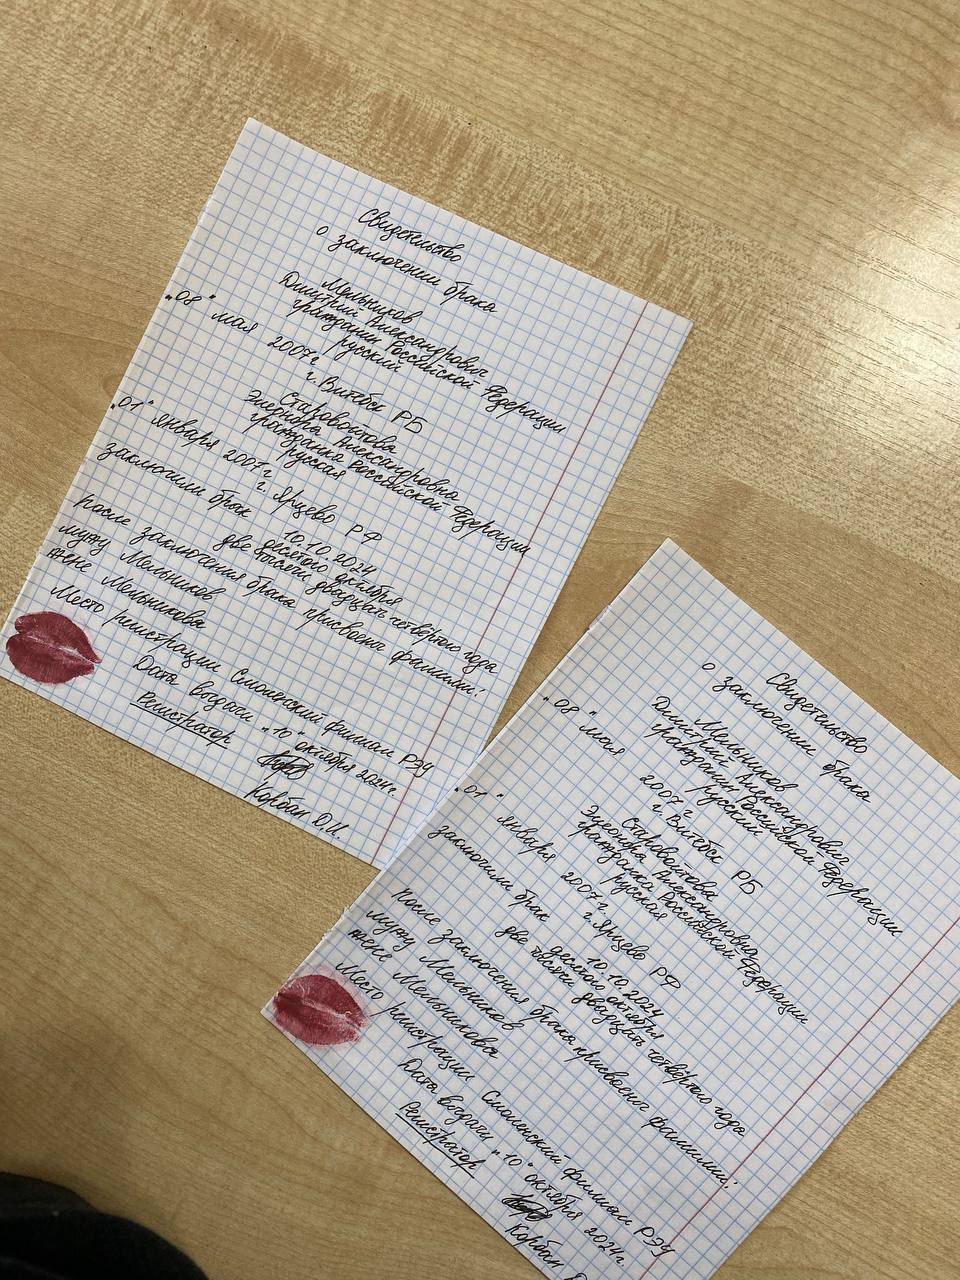 Свидетельство
о заключении брака
Мельников
Дмитрий Александрович
гражданин Российской Федерации
русский
"08" мая 2007г
г. Витебск РБ
Старовойтова
Элеонора Александровна
гражданка Российской Федерации
русская
"01" января 2007г
г. Ярцево РФ
заключили брак 10.10.2024
десятого октября
две тысячи двадцать четвертого года
после заключения брака присвоены фамилии:
мужу Мельников
жене Мельникова
Место регистрации Смоленский филиал РЭУ
Дата выдачи "10" октября 2024г.
Регистратор
Корбан Д.И.
Свидетельство
о заключении брака
Мельников
Дмитрий Александрович
гражданин Российской Федерации
русский
"08" мая 2007 г
г. Витебск РБ
Старовойтова
Элеонора Александровна
гражданка Российской Федерации
русская
"01" января 2007 г.
г. Ярцево РФ
заключили брак 10.10.2024
десятого октября
две тысячи двадцать четвёртого года
После заключения брака присвоены фамилии:
мужу Мельников
жене Мельникова
Место регистрации Смоленский филиал РЭУ
Дата выдачи "10" октября 2024г.
Регистратор
Корбан